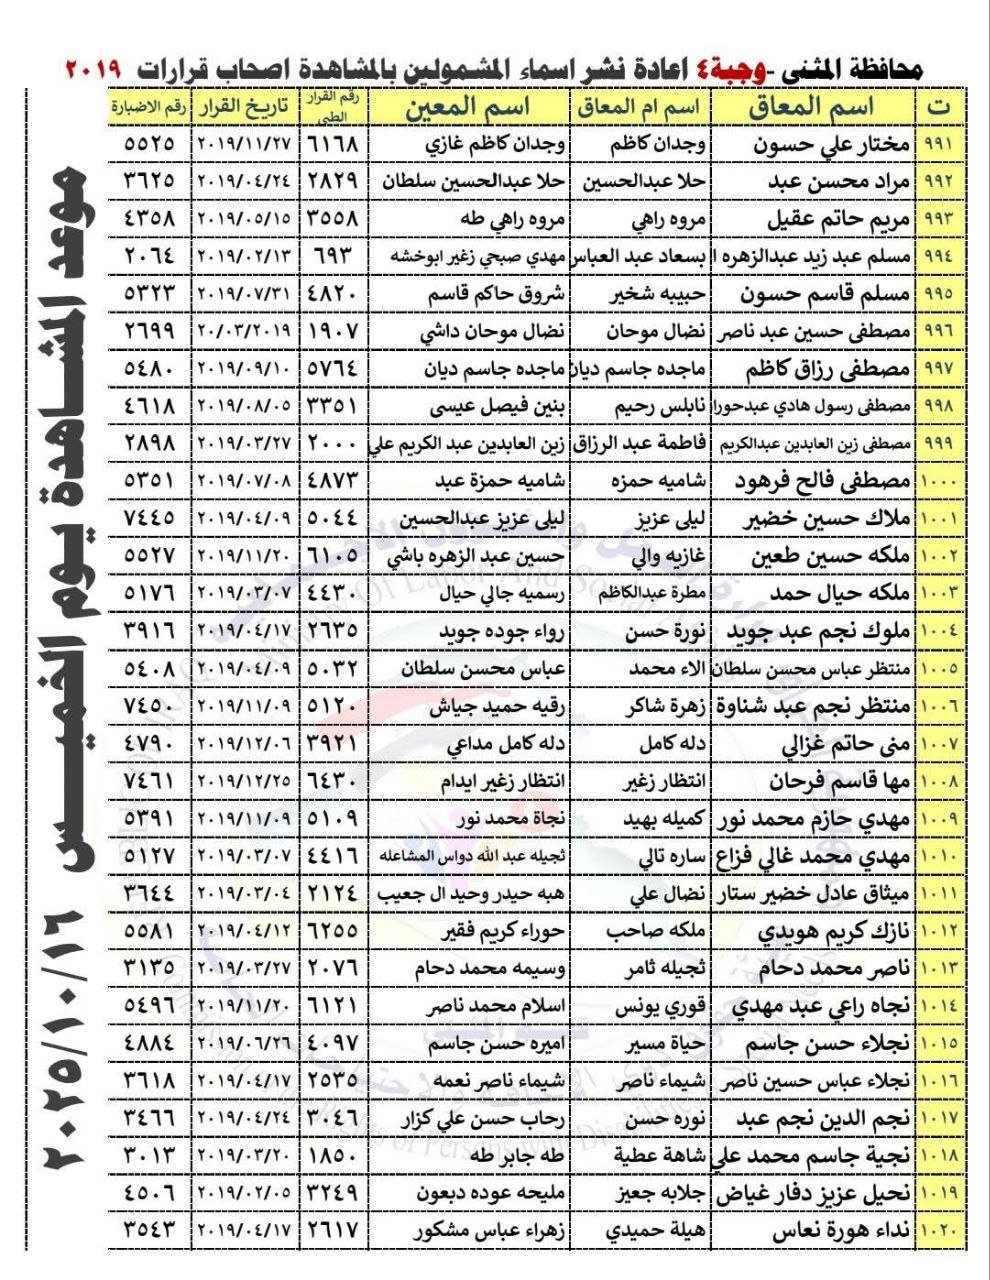 محافظة المثنى -وجبة٤ اعادة نشر اسماء المشمولين بالمشاهدة اصحاب قرارات ٢٠١٩
ت اسم المعاق اسم ام المعاق اسم المعين رقم القرار الطبي تاريخ القرار رقم الاضبارة
٩٩١ مختار علي حسون وجدان كاظم وجدان كاظم غازي ٦١٦٨ ٢٠١٩/١١/٢٧ ٥٥٢٥
٩٩٢ مراد محسن عبد حلا عبدالحسين حلا عبدالحسين سلطان ٢٨٢٩ ٢٠١٩/٠٤/٢٤ ٣٦٢٥
٩٩٣ مريم حاتم عقيل مروه راهي مروه راهي طه ٣٥٥٨ ٢٠١٩/٠٥/١٥ ٤٣٥٨
٩٩٤ مسلم عبد زيد عبدالزهره ا بسعاد عبد العباس مهدي صبحي زغير ابوخشه ٦٩٣ ٢٠١٩/٠٢/١٣ ٢٠٦٤
٩٩٥ مسلم قاسم حسون حبيبه شخير شروق حاكم قاسم ٤٨٢٠ ٢٠١٩/٠٧/٣١ ٥٣٢٣
٩٩٦ مصطفى حسين عبد ناصر نضال موحان نضال موحان داشي ١٩٠٧ ٢٠/٠٣/٢٠١٩ ٢٦٩٩
٩٩٧ مصطفى رزاق كاظم ماجده جاسم ديان ماجده جاسم ديان ٥٧٦٤ ٢٠١٩/٠٩/١٠ ٥٤٨٠
٩٩٨ مصطفى رسول هادي عبدحورا نابلس رحيم بنين فيصل عيسى ٣٣٥١ ٢٠١٩/٠٨/٠٥ ٤٦١٨
٩٩٩ مصطفى زين العابدين عبدالكريم فاطمة عبد الرزاق زين العابدين عبد الكريم علي ٢٠٠٠ ٢٠١٩/٠٣/٢٧ ٢٨٩٨
١٠٠٠ مصطفى فالح فرهود شاميه حمزه شاميه حمزة عبد ٤٨٧٣ ٢٠١٩/٠٧/٠٨ ٥٣٥١
١٠٠١ ملاك حسين خضير ليلى عزيز ليلى عزيز عبدالحسين ٥٠٤٤ ٢٠١٩/٠٤/٠٩ ٧٤٤٥
١٠٠٢ ملكه حسين طعين غازيه والي حسين عبد الزهره باشي ٦١٠٥ ٢٠١٩/١١/٢٠ ٥٥٢٧
١٠٠٣ ملكه حيال حمد مطرة عبدالكاظم رسميه جالي حيال ٤٤٣٠ ٢٠١٩/٠٣/٠٧ ٥١٧٦
١٠٠٤ ملوك نجم عبد جويد نورة حسن رواء جوده جويد ٢٦٣٥ ٢٠١٩/٠٤/١٧ ٣٩١٦
١٠٠٥ منتظر عباس محسن سلطان الاء محمد عباس محسن سلطان ٥٠٣٢ ٢٠١٩/٠٤/٠٩ ٥٤٠٨
١٠٠٦ منتظر نجم عبد شناوة زهرة شاكر رقيه حميد جياش ٥١٢٠ ٢٠١٩/١١/٠٩ ٧٤٥٠
١٠٠٧ منى حاتم غزالي دله كامل دله كامل مداعي ٣٩٢١ ٢٠١٩/١٢/٠٦ ٤٧٩٠
١٠٠٨ مها قاسم فرحان انتظار زغير انتظار زغير ايدام ٦٤٣٠ ٢٠١٩/١٢/٢٥ ٧٤٦١
١٠٠٩ مهدي حازم محمد نور كميله بهيد نجاة محمد نور ٥١٠٩ ٢٠١٩/١١/٠٩ ٥٣٩١
١٠١٠ مهدي محمد غالي فزاع ساره تالي ثجيله عبد الله دواس المشاعله ٤٤١٦ ٢٠١٩/٠٣/٠٧ ٥١٢٧
١٠١١ ميثاق عادل خضير ستار نضال علي هبه حيدر وحيد ال جعيب ٢١٢٤ ٢٠١٩/٠٣/٠٤ ٣٦٤٤
١٠١٢ نازك كريم هويدي ملكه صاحب حوراء كريم فقير ٦٢٥٥ ٢٠١٩/٠٤/١٢ ٥٥٨١
١٠١٣ ناصر محمد دحام ثجيله ثامر وسيمه محمد دحام ٢٠٧٦ ٢٠١٩/٠٣/٢٧ ٣١٣٥
١٠١٤ نجاه راعي عبد مهدي فوري يونس اسلام محمد ناصر ٦١٢١ ٢٠١٩/١١/٢٠ ٥٤٩٦
١٠١٥ نجلاء حسن جاسم حياة مسير اميره حسن جاسم ٤٠٩٧ ٢٠١٩/٠٦/٢٦ ٤٨٨٤
١٠١٦ نجلاء عباس حسين ناصر شيماء ناصر شيماء ناصر نعمه ٢٥٣٥ ٢٠١٩/٠٤/١٧ ٣٦١٨
١٠١٧ نجم الدين نجم عبد نوره حسن رحاب حسن علي كزار ٣٠٤٦ ٢٠١٩/٠٤/٢٤ ٣٤٦٦
١٠١٨ نجية جاسم محمد علي شاهة عطية طه جابر طه ١٨٥٠ ٢٠١٩/٠٣/٢٠ ٣٠١٣
١٠١٩ نحيل عزيز دفار غياض جلابه جعيز مليحه عوده دبعون ٣٢٤٩ ٢٠١٩/٠٢/٠٥ ٤٥٠٦
١٠٢٠ نداء هورة نعاس هيلة حميدي زهراء عباس مشكور ٢٦١٧ ٢٠١٩/٠٤/١٧ ٣٥٤٣
موعد المشاهدة يوم الخميس ٢٠٢٥/١٠/١٦